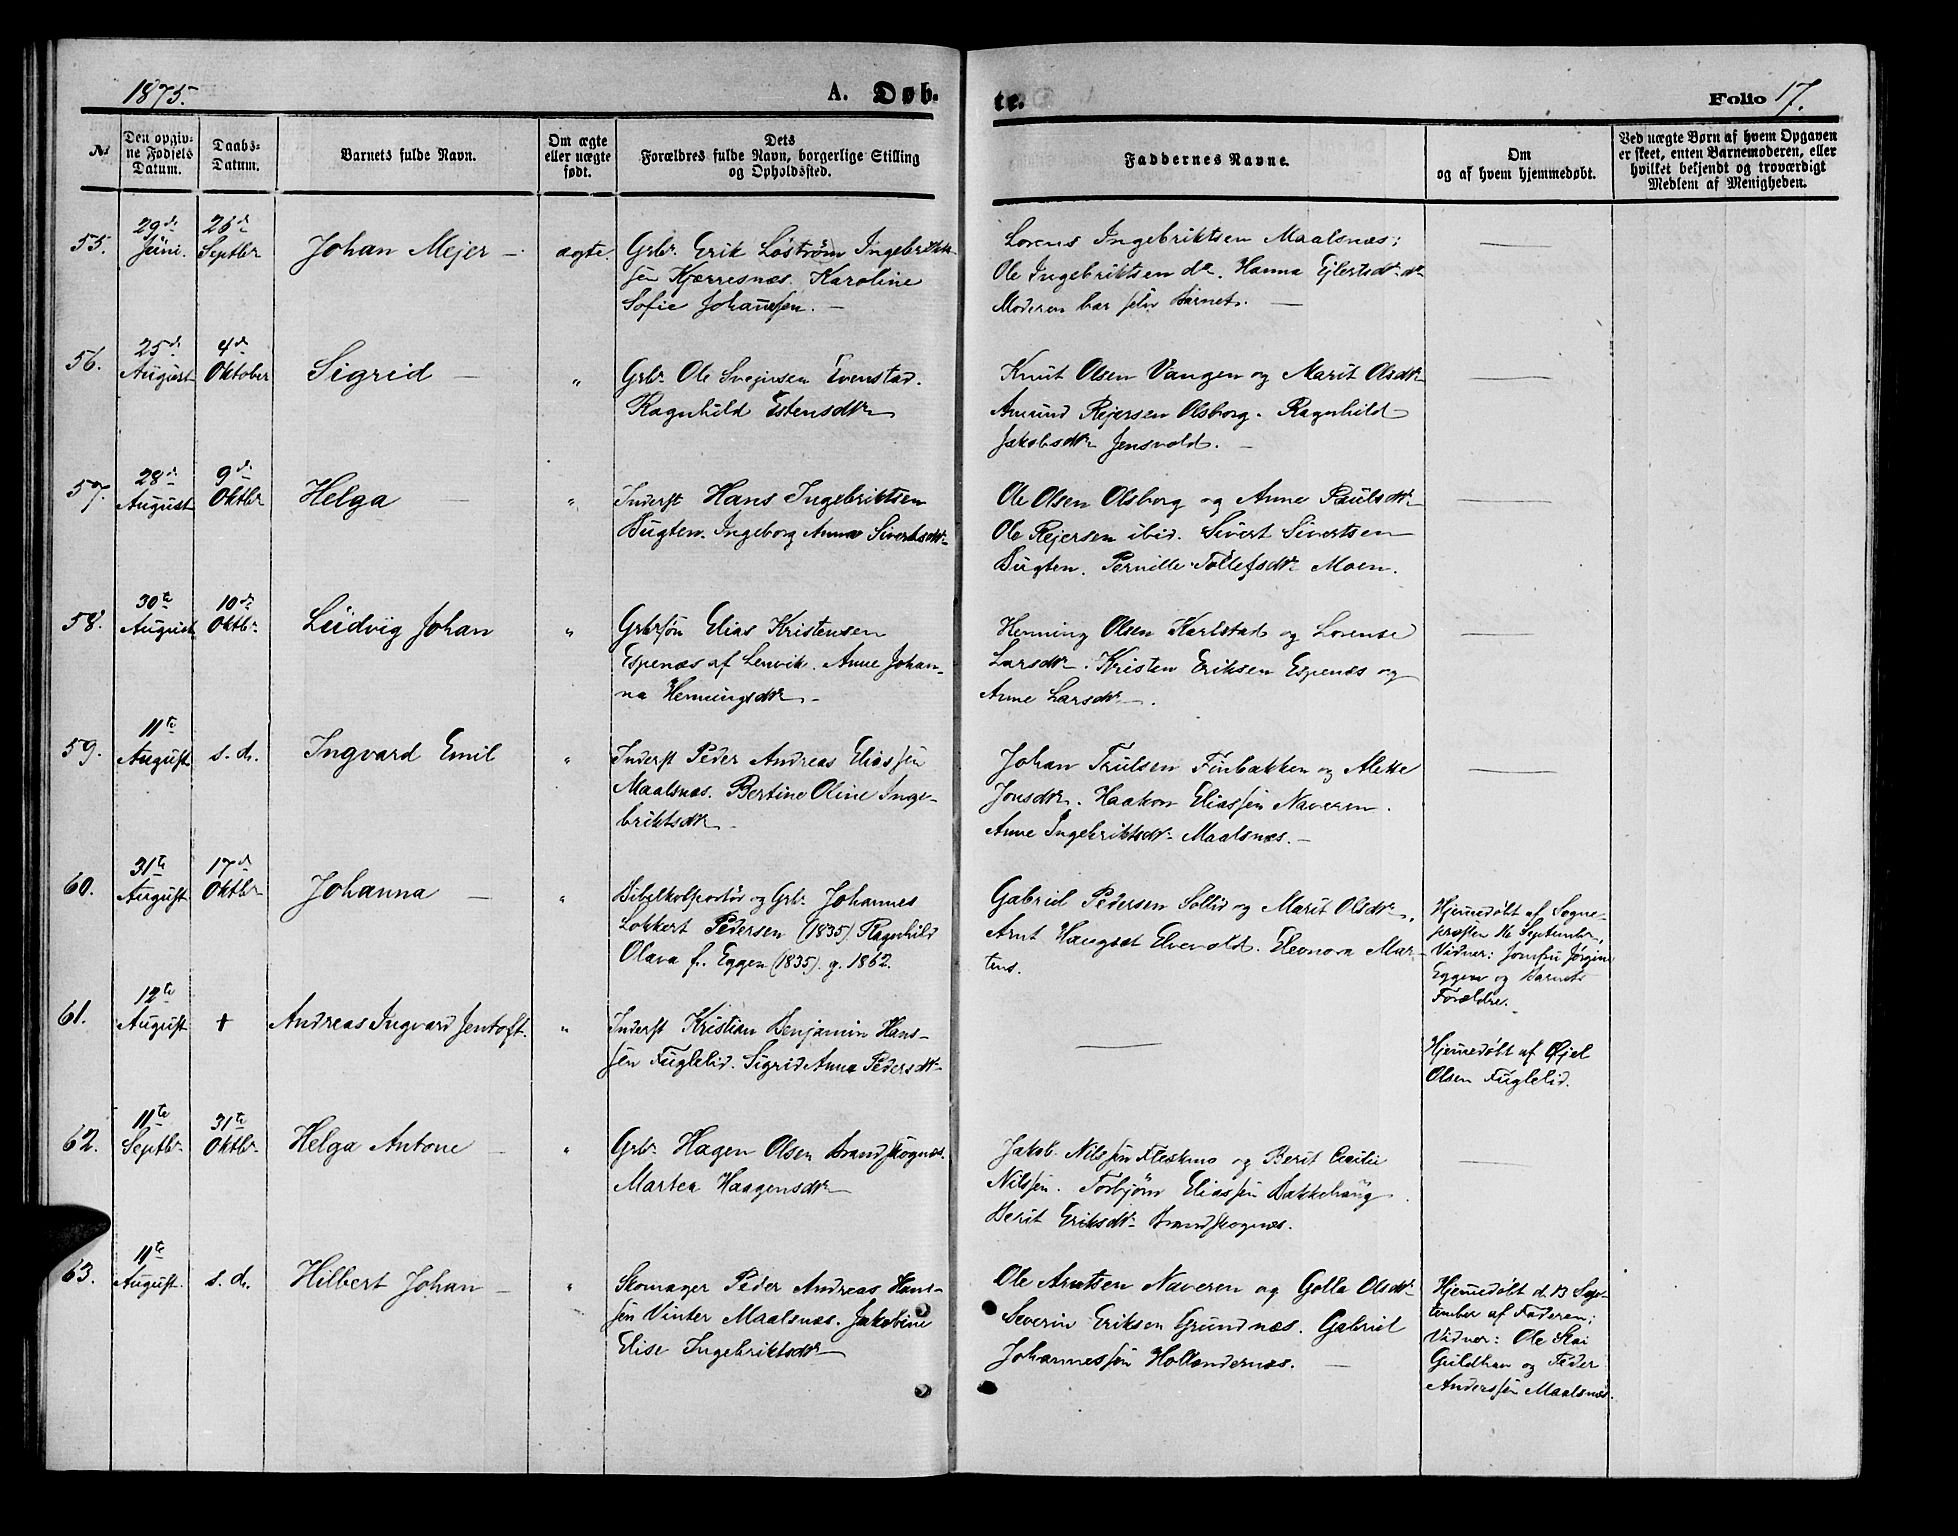 1875.
A. Døb-
te.
Folio 17.
No
Den opgiv-
ne Fødsels
Datum.
Daabs-
Datum.
Barnets fulde Navn.
Om ægte
eller uægte
født.
Dets
Forældres fulde Navn, borgerlige Stilling
og Opholdssted.
Faddernes Navne.
Om
og af hvem hjemmedøbt.
Ved uægte Børn af hvem Opgaven
er skeet, enten Barnemoderen, eller
hvilket bekjendt og troværdigt
Medlem af Menigheden.
55.
29de
Juni.
26de
Septbr
Johan Mejer —
ægte.
Grbr. Erik Løstrøm Ingebrikt-
sen Kjærresnæs. Karoline
Sofie Johannssen. —
Lorens Ingebriktsen Maalsnæs;
Ole Ingebriktsen do. Hanna Ejlertsdtr. do
Moderen bar selv Barnet. —
56.
25de
August
4de
Oktober
Sigrid —
"
Grbr. Ole Svejnsen Evenstad.
Ragnhild Estensdtr
Knut Olsen Vangen og Marit Olsdtr
Amund Rejersen Olsborg. Ragnhild
Jakobsdtr Jensvold. —
57.
28de
August
9de
Oktbr
Helga —
"
Inderst Hans Ingebriktsen
Bugten. Ingeborg Anna Sivertsdtr.
Ole Olsen Olsborg og Anne Paulsdtr
Ole Rejersen ibid. Sivert Sivertsen
Bugten. Pernille Tollefsdtr. Moen.
58.
30te
August
10de
Oktbr.
Ludvig Johan
"
Grbrsøn Elias Kristensen
Espenæs af Lenvik. Anne Johan-
na Henningsdtr —
Henning Olsen Karlstad og Lorense
Larsdtr. Kristen Eriksen Espenæs og
Anne Larsdtr.
59.
11te
August
s. d.
Ingvard Emil
"
Inderst Peder Andreas Eliassen
Maalsnæs. Bertine Oline Inge-
briktsdtr —
Johan Trulsen Finbakken og Alette
Jonsdtr. Haakon Eliassen Naveren.
Anne Ingebriktsdtr. Maalsnæs. —
60.
31te
August
17de
Oktbr
Johanna —
"
Bibelkolportør og Grbr. Johannes
Lokkert Pedersen (1835). Ragnhild
Olava f. Eggen (1835). g. 1862.
Gabriel Pedersen Sollid og Marit Olsdtr.
Arnt Haugset Elvevold. Eleonora Mar-
tens.
Hjemedøbt af Sogne-
presten 16 September,
Vidner: Jomfru Jörgine
Eggen og Barnets
Forældre.
61.
12te
August
+
Andreas Ingvard Jentoft.
"
Inderst Kristian Benjamin Hans-
sen Fuglelid. Sigrid Anna Pedersdtr.
Hjemedøbt af Ejel
Olsen Fuglelid.
62.
11te
Septbr.
31te
Oktbr.
Helga Antone —
"
Grbr. Hagen Olsen Brandskognæs.
Martea Haagensdtr
Jakob Nilssen Fleskmo og Berit Cecilie
Nilssen. Torbjørn Eliassen Bakkehaug
Berit Eriksdtr. Brandskognæs.
63.
11te
August.
s. d.
Hilbert Johan —
"
Skomager Peder Andreas Hans-
sen Vinter Maalsnæs. Jakobine
Elise Ingebriktsdtr
Ole Arntsen Naveren og Golla Olsdtr
Severin Eriksen Grundnæs. Gabriel
Johannessen Hollendernæs. —
Hjemedøbt d. 13 Sep-
tember af Faderen;
Vidner: Ole
Guldhav og Peder
Anderssen Maalsnæs.